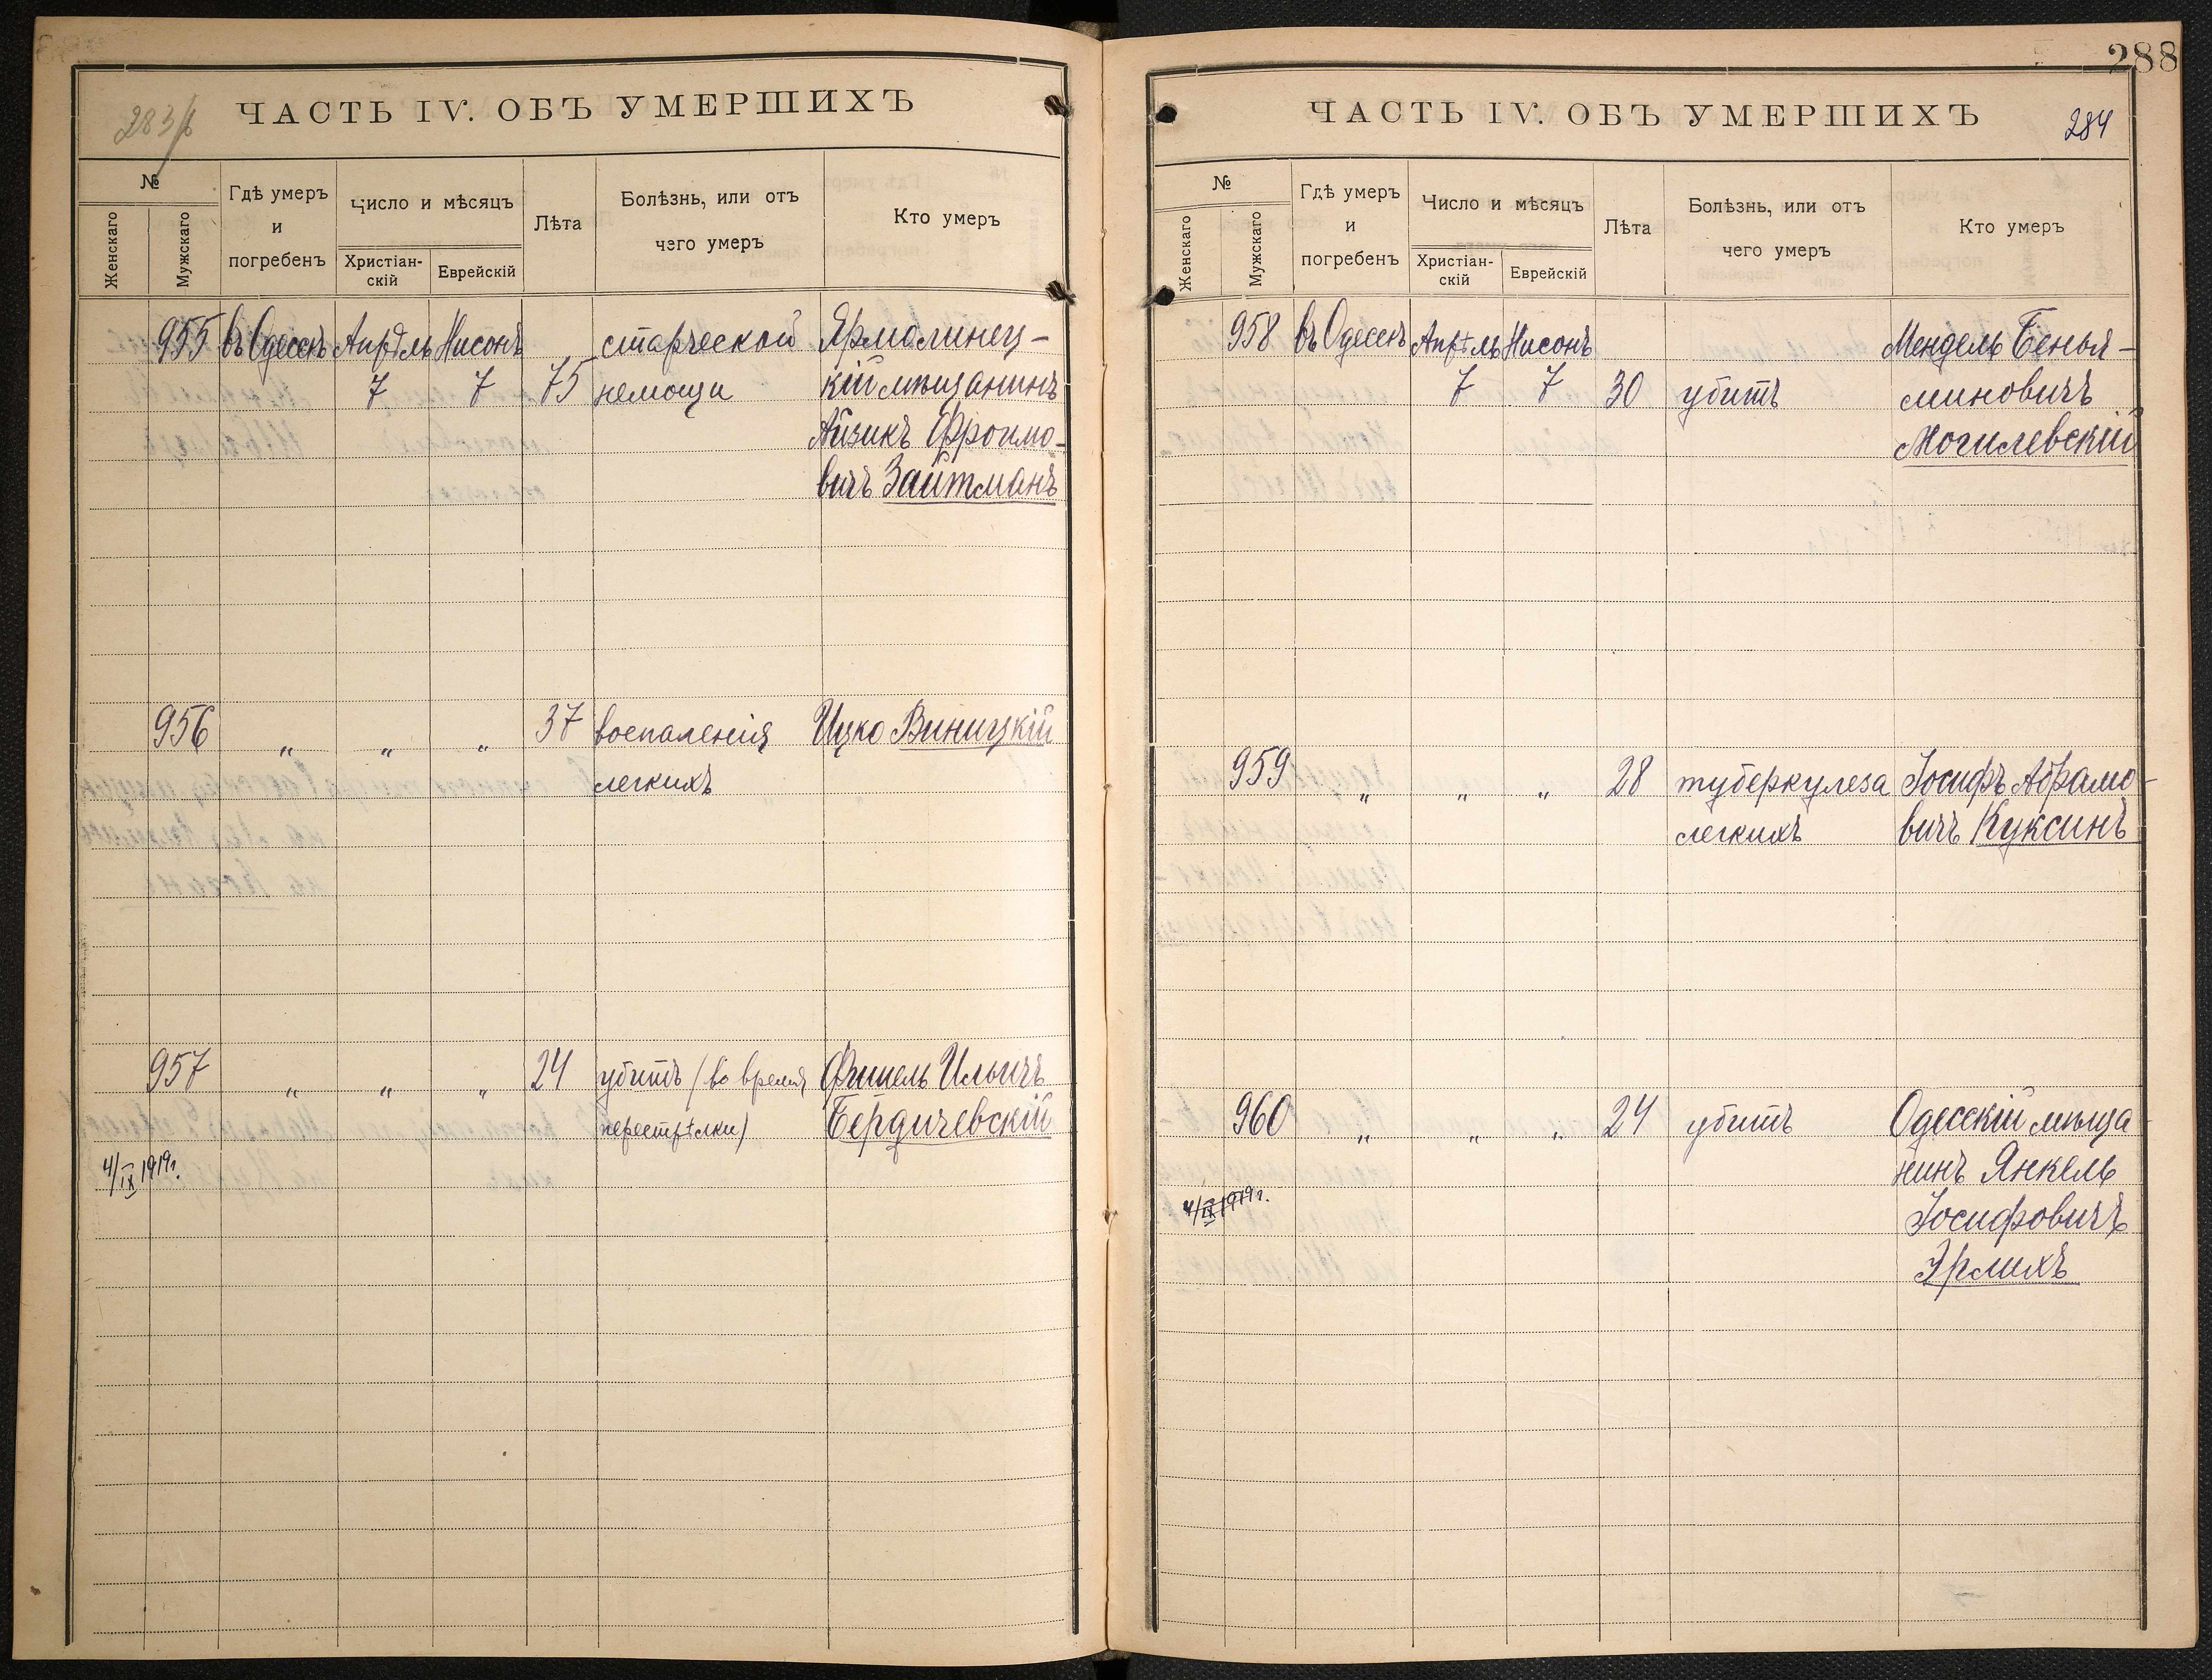 283 / в
ЧАСТЬ IV. ОБЪ УМЕРШИХЪ
№
Женскаго
Мужскаго
Гдѣ умеръ
и
погребенъ
Число и мѣсяцъ
Христіан-
скій
Еврейскій
Лѣта
Болѣзнь, или отъ
чего умеръ
Кто умеръ
955 въ Одессѣ Апрѣль Нисонъ старческой Ярмолинец-
7 7 75 немощи кій мѣщанинъ
Айзикъ Фроимо-
вичъ Зайтманъ
956 " " " 37 воспаленія Ицко Виницкій
легкихъ
957 " " " 24 убитъ (во время Фишель Ильичъ
перестрѣлки) Бердичевскій
4/IX 1919г.
288
284
ЧАСТЬ IV. ОБЪ УМЕРШИХЪ
№
Женскаго
Мужскаго
Гдѣ умеръ
и
погребенъ
Число и мѣсяцъ
Христіан-
скій
Еврейскій
Лѣта
Болѣзнь, или отъ
чего умеръ
Кто умеръ
958 въ Одессѣ Апрѣль Нисонъ Мендель Бенья-
7 7 30 убитъ миновичъ
Могилевскій
959 " " " 28 туберкулеза Іосифъ Абрамо-
легкихъ вичъ Куксинъ
960 " " " 24 убитъ Одесскій мѣща
нинъ Янкель
4/IX 1919г.
Іосифовичъ
Эрлихъ